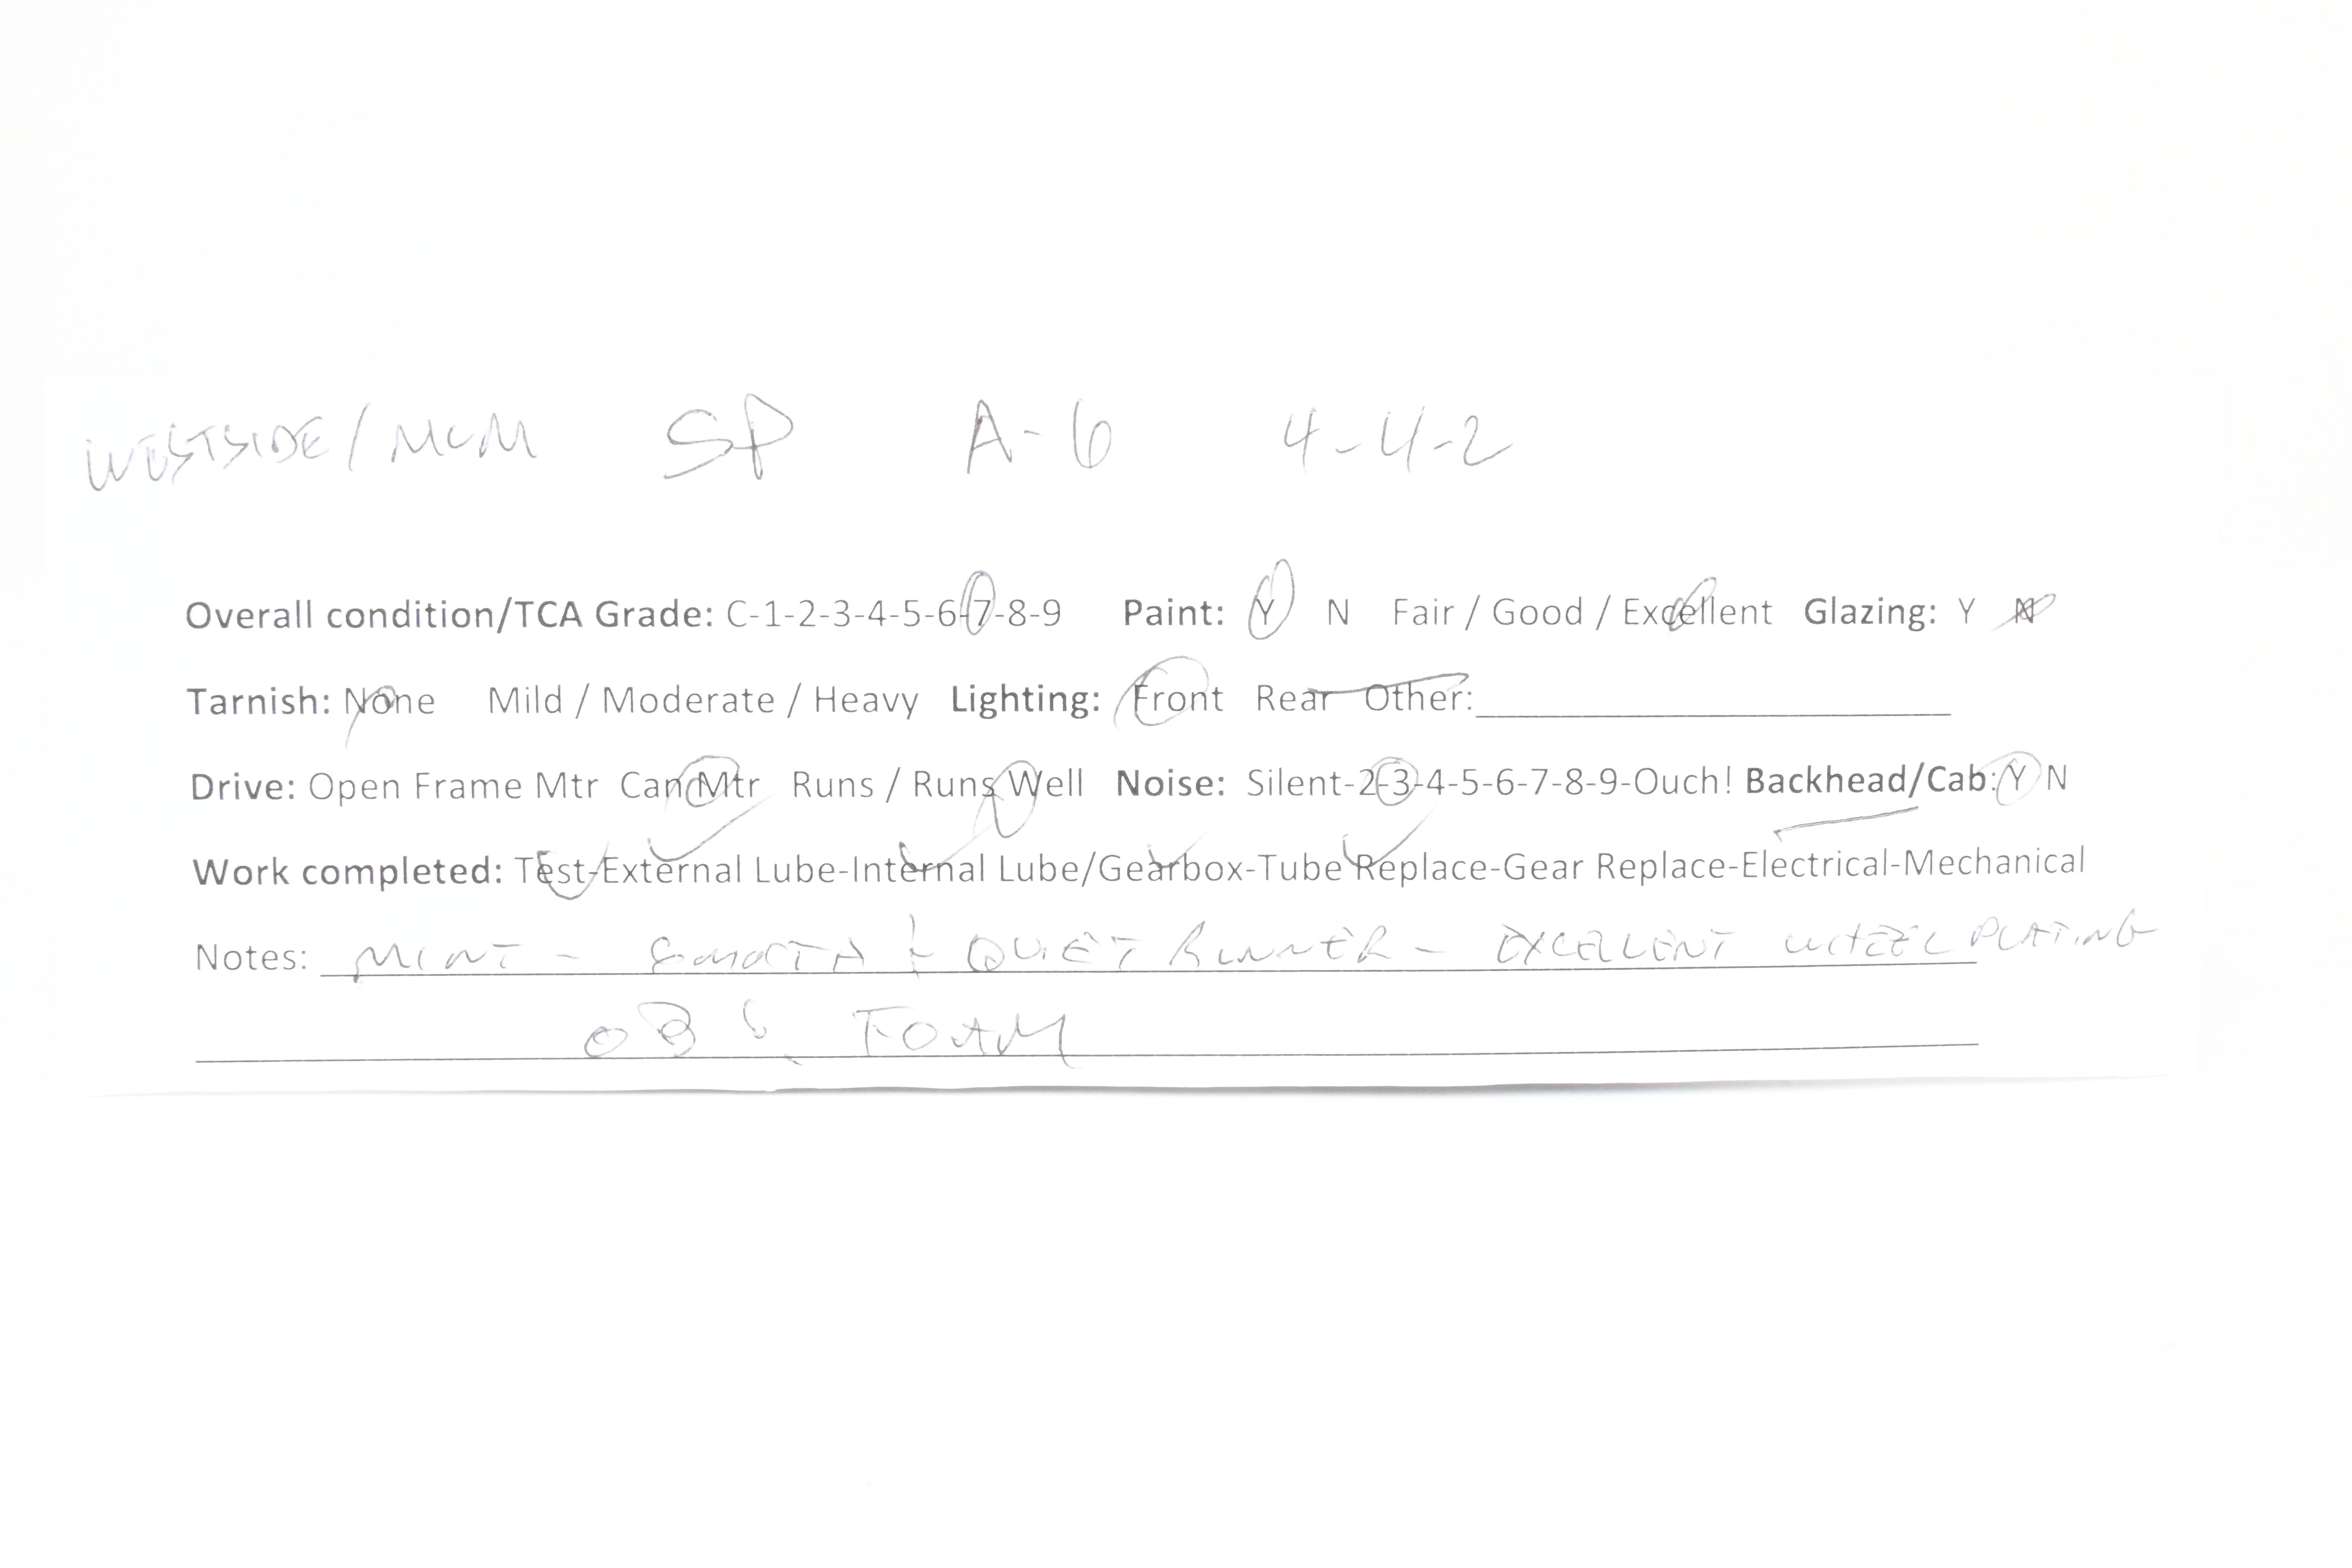 WESTSIDE/MCM SP A-6 4-4-2
Overall condition/TCA Grade: C-1-2-3-4-5-6-7-8-9 Paint: Y N Fair / Good / Excellent Glazing: Y N
Tarnish: None Mild / Moderate / Heavy Lighting: Front Rear Other:
Drive: Open Frame Mtr Can Mtr Runs / Runs Well Noise: Silent-2-3-4-5-6-7-8-9-Ouch! Backhead/Cab: Y N
Work completed: Test-External Lube-Internal Lube/Gearbox-Tube Replace-Gear Replace-Electrical-Mechanical
Notes: MINT - SMOOTH & QUIET RUNNER - EXCELLENT WHEEL PLATING
OB & FOAM